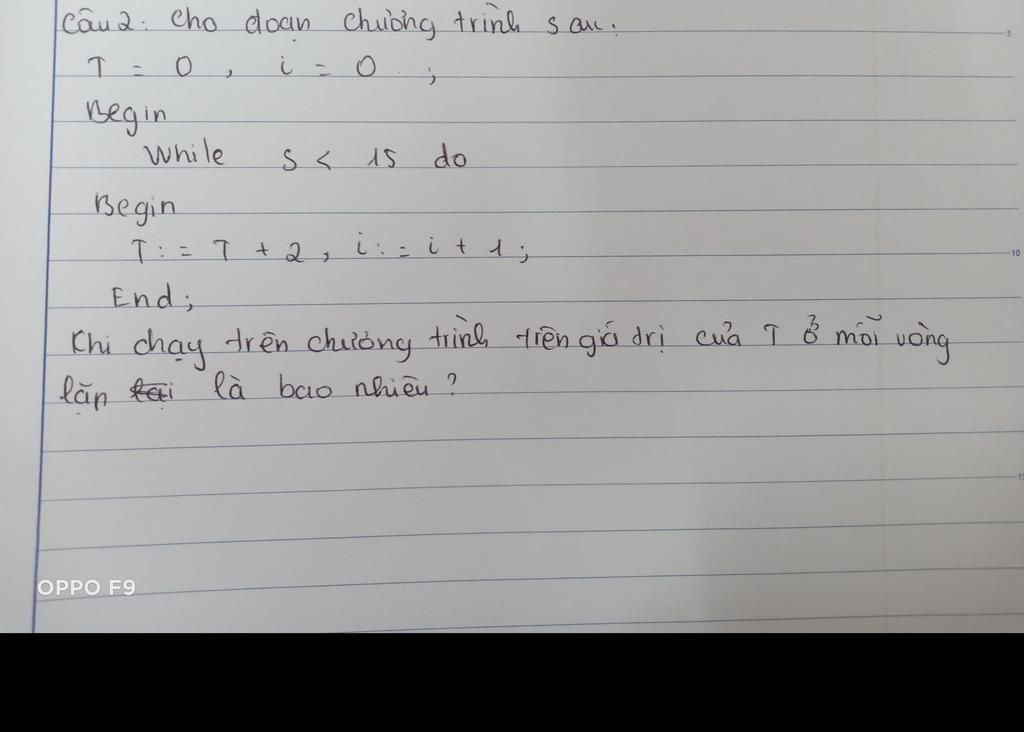 Câu 2: Cho đoạn chương trình sau:
T = 0 , i = 0 ;
Begin
While S < 15 do
Begin
T := T + 2 , i := i + 1 ;
End ;
Khi chạy trên chương trình trên giá trị của T ở mỗi vòng
lặp là bao nhiêu ?
OPPO F9
5
10